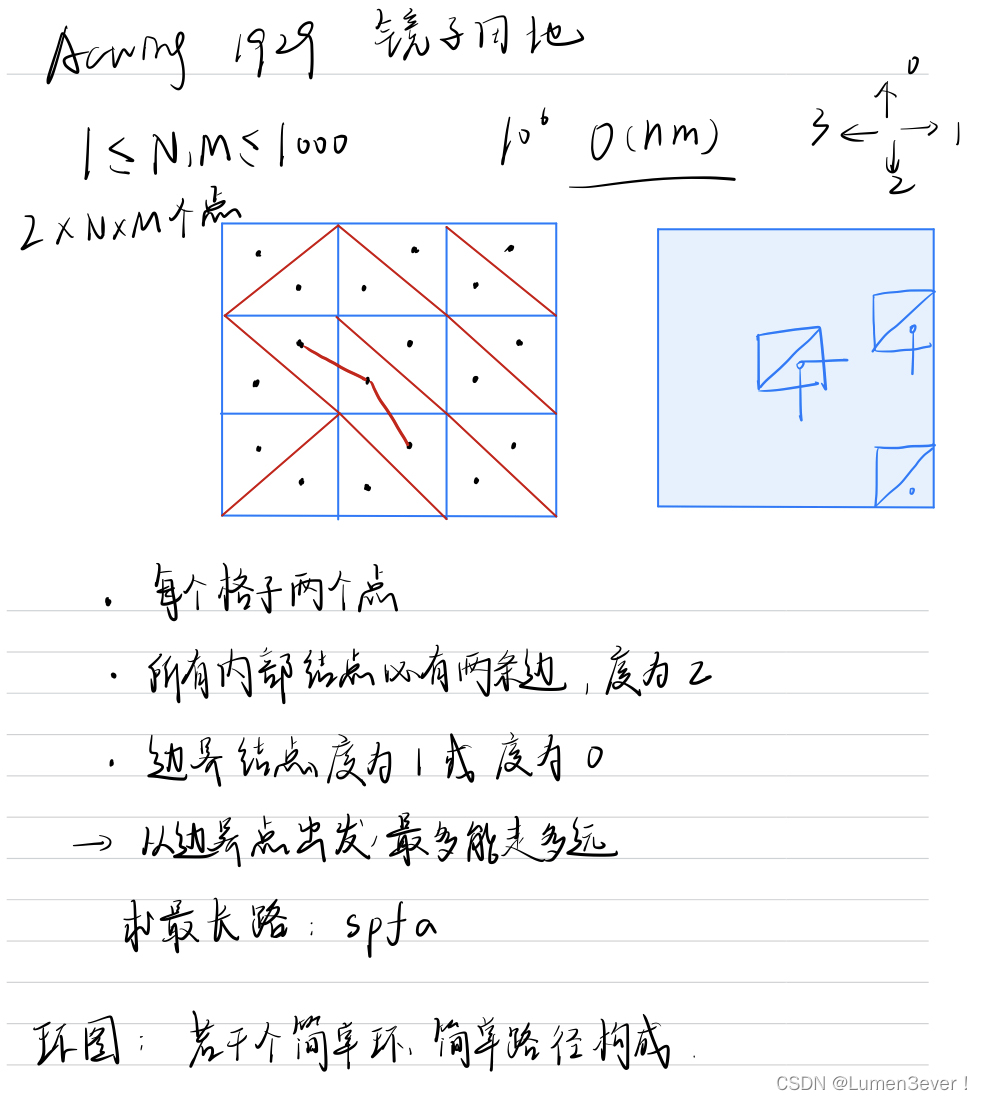 Acwing 1929 镜子田地
1 ≤ N,M ≤ 1000
10^6 O(nm)
0
3 1
2
2×N×M个点
· 每个格子两个点
· 所有内部结点必有两条边, 度为 2
· 边界结点度为 1 或 度为 0
→ 从边界点出发, 最多能走多远
求最长路: spfa
环图: 若干个简单环, 简单路径构成.
CSDN @Lumen3ever！